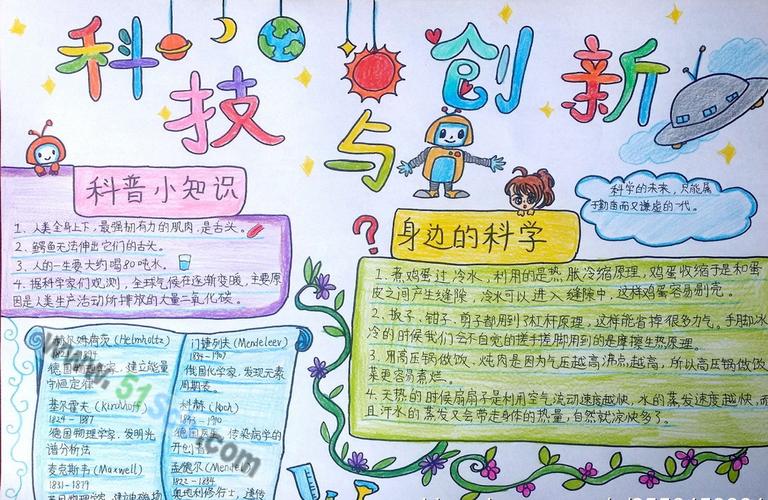 科技与创新
科普小知识
1、人类全身上下，最强韧有力的肌肉，是舌头。
2、鳄鱼无法伸出它们的舌头。
3、人的一生要大约喝80吨水。
4、据科学家们观测，全球气候在逐渐变暖，主要原
因是人类生产活动所排放的大量二氧化碳。
科学的未来，只能属
于勤奋而又谦虚的一代。
身边的科学
1、煮鸡蛋过冷水，利用的是热胀冷缩原理，鸡蛋收缩于是和蛋
皮之间产生缝隙，冷水可以进入缝隙中，这样鸡蛋容易剥壳。
2、扳子、钳子、剪子都用到了杠杆原理，这样能省掉很多力气。手脚冰
冷的时候我们会不自觉的搓手搓脚用到的是摩擦生热原理。
3、用高压锅做饭、炖肉是因为气压越高沸点越高，所以高压锅做饭
菜更容易煮烂。
4、天热的时候扇扇子是利用空气流动速度越快，水的蒸发速度越快，而
且汗水的蒸发又会带走身体的热量，自然就凉快多了。
赫尔姆荷茨(Helmholtz)
德国 学家，建立能量
守恒定律
基尔霍夫(Kirchhoff)
1824-1887
德国物理学家，发明光
谱分析法
麦克斯韦(Maxwell)
1831-1879
门捷列夫(Mendeleev)
1834-1907
俄国化学家，发现元素
周期表。
科赫(Koch)
1843-1910
德国医 传染病学的
开创者
孟德尔(Mendel)
1822-1884
奥地利修行士，遗传